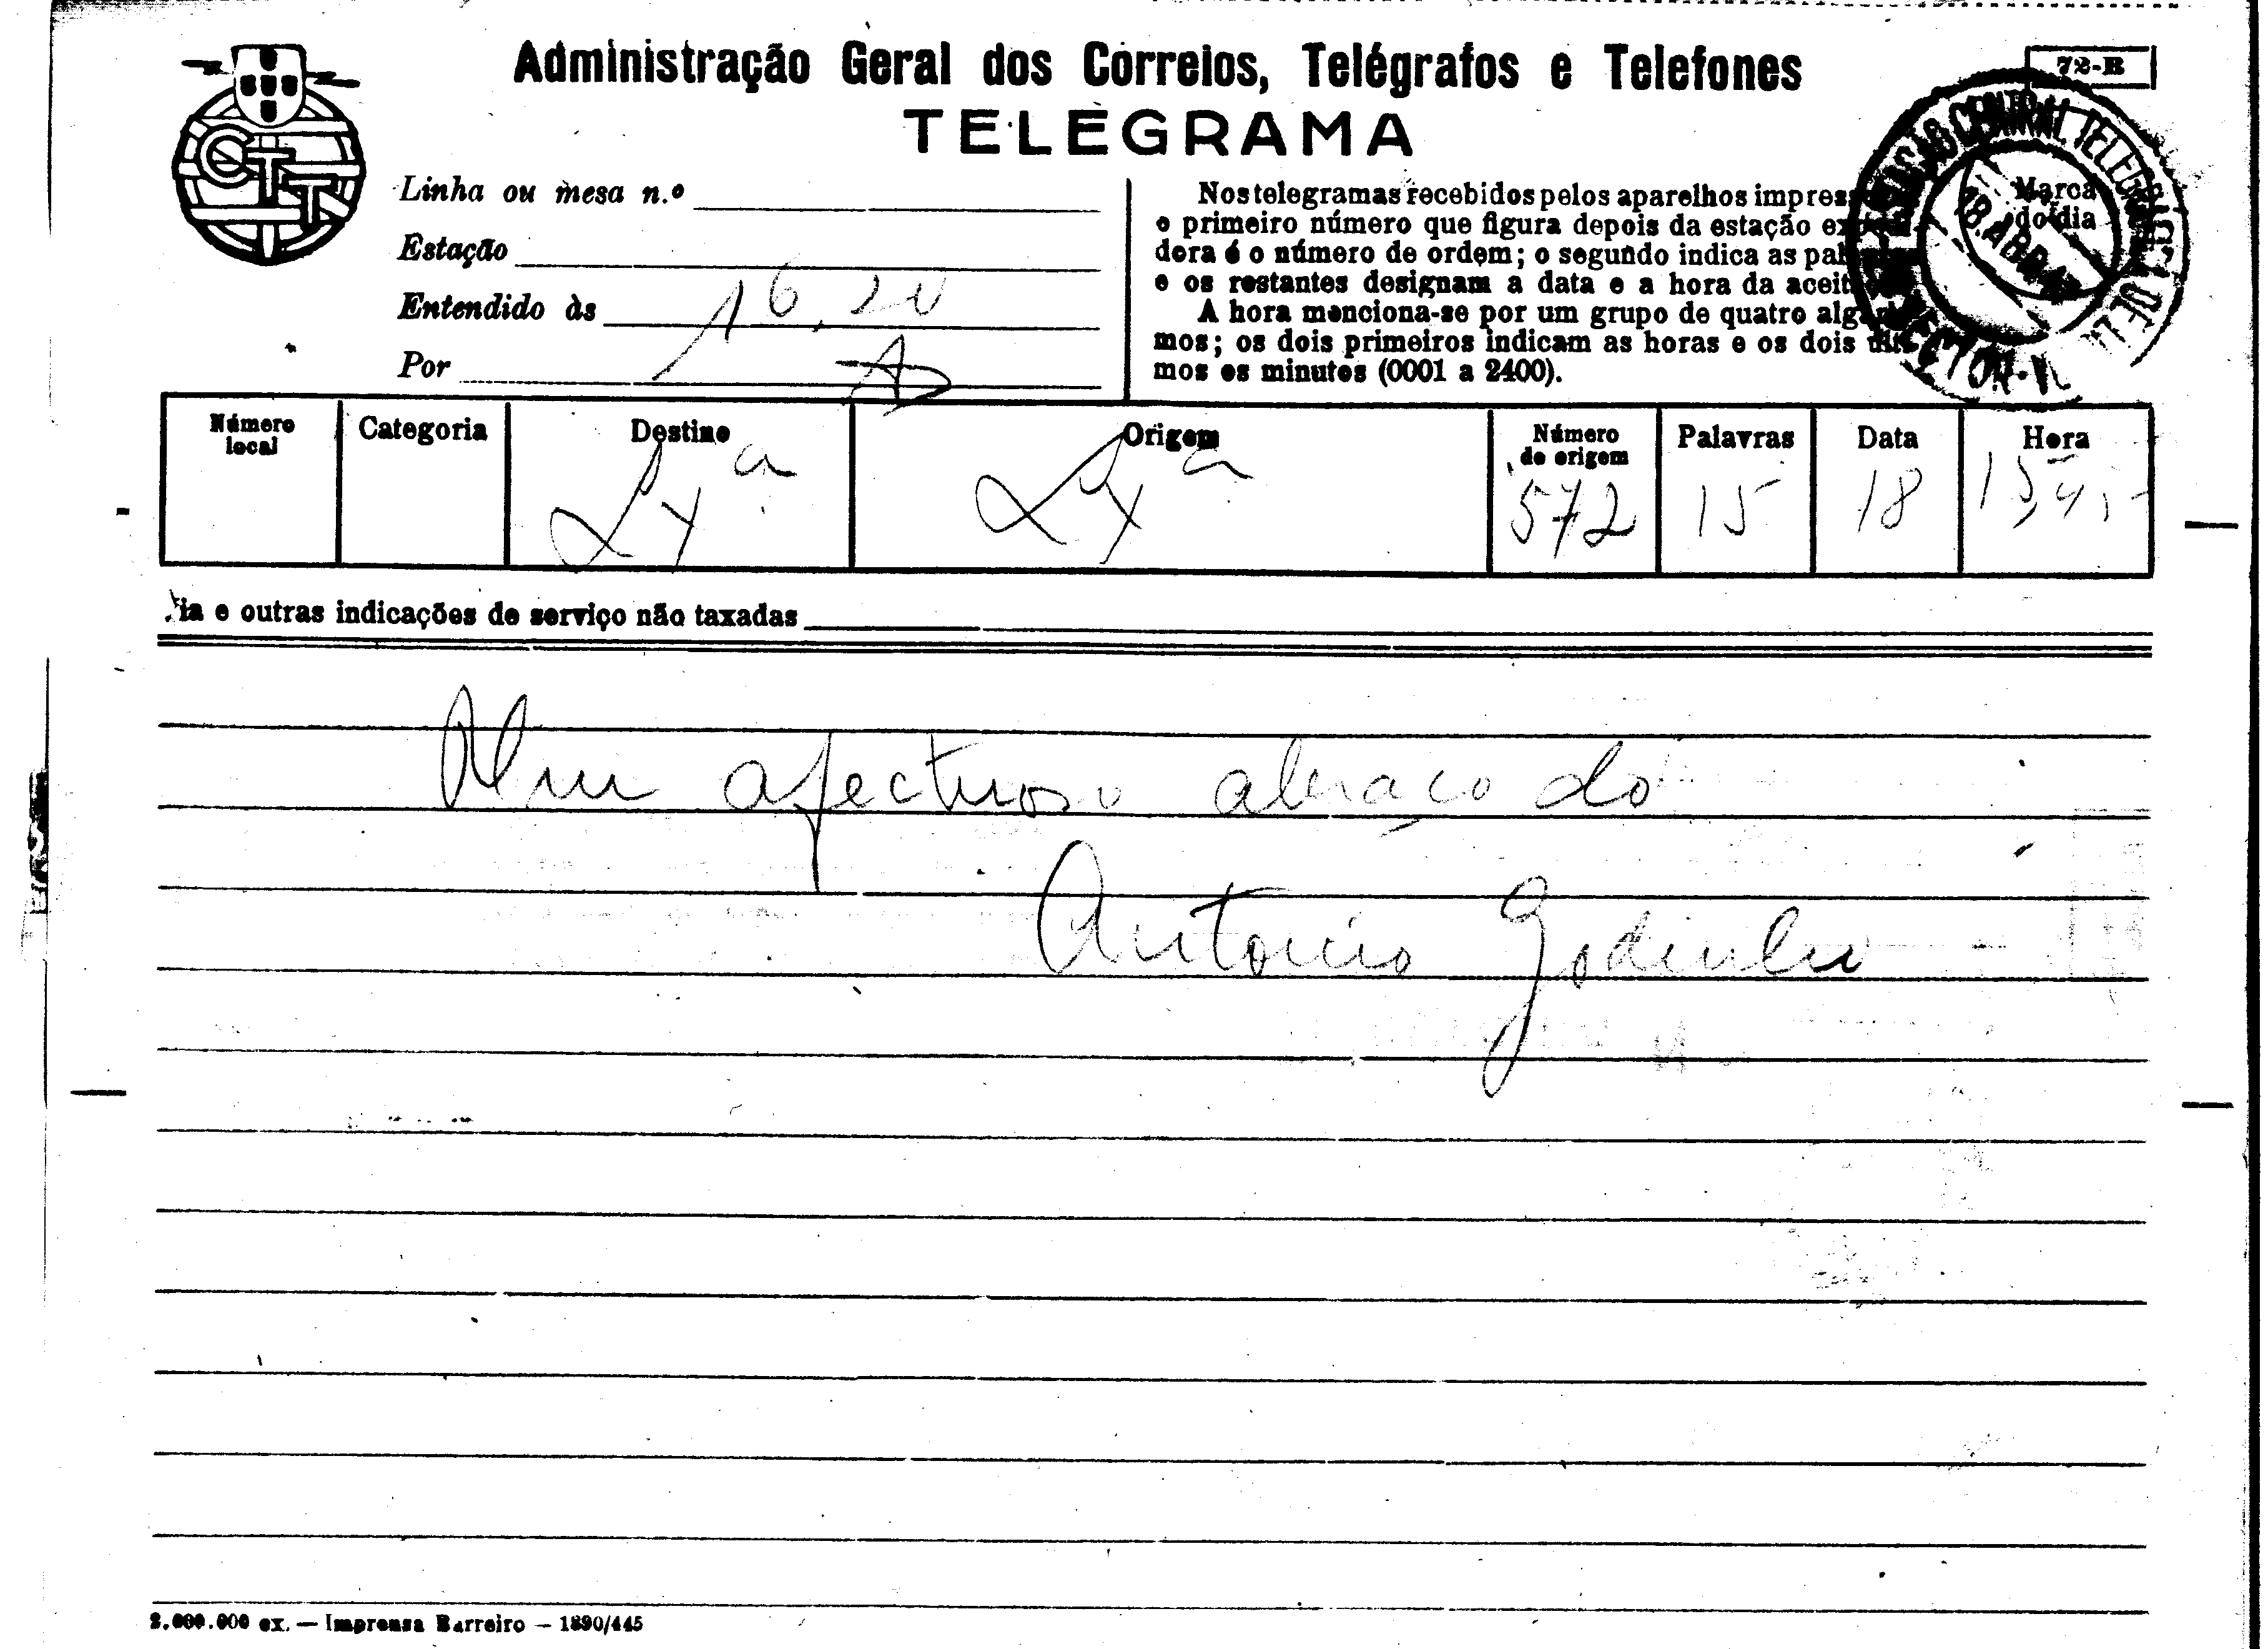 Administração Geral dos Correios, Telégrafos e Telefones
72-B
TELEGRAMA
CTT
Linha ou mesa n.º
Estação
Entendido às 16,20
Por
Nos telegramas recebidos pelos aparelhos impres
o primeiro número que figura depois da estação
dora é o número de ordem; o segundo indica as
e os restantes designam a data e a hora da
A hora menciona-se por um grupo de quatro
mos; os dois primeiros indicam as horas e os dois
mos os minutos (0001 a 2400).
Marca do dia
CENTRAL TELEGRAFICA DE
18.ABR
Número local
Categoria
Destino
Origem
Número de origem
Palavras
Data
Hora
Lxª Lxª 572 15 18
ia e outras indicações de serviço não taxadas
Um afectuoso abraço do
Antonio Godinho
2.000.000 ex. — Imprensa Barreiro — 1890/445